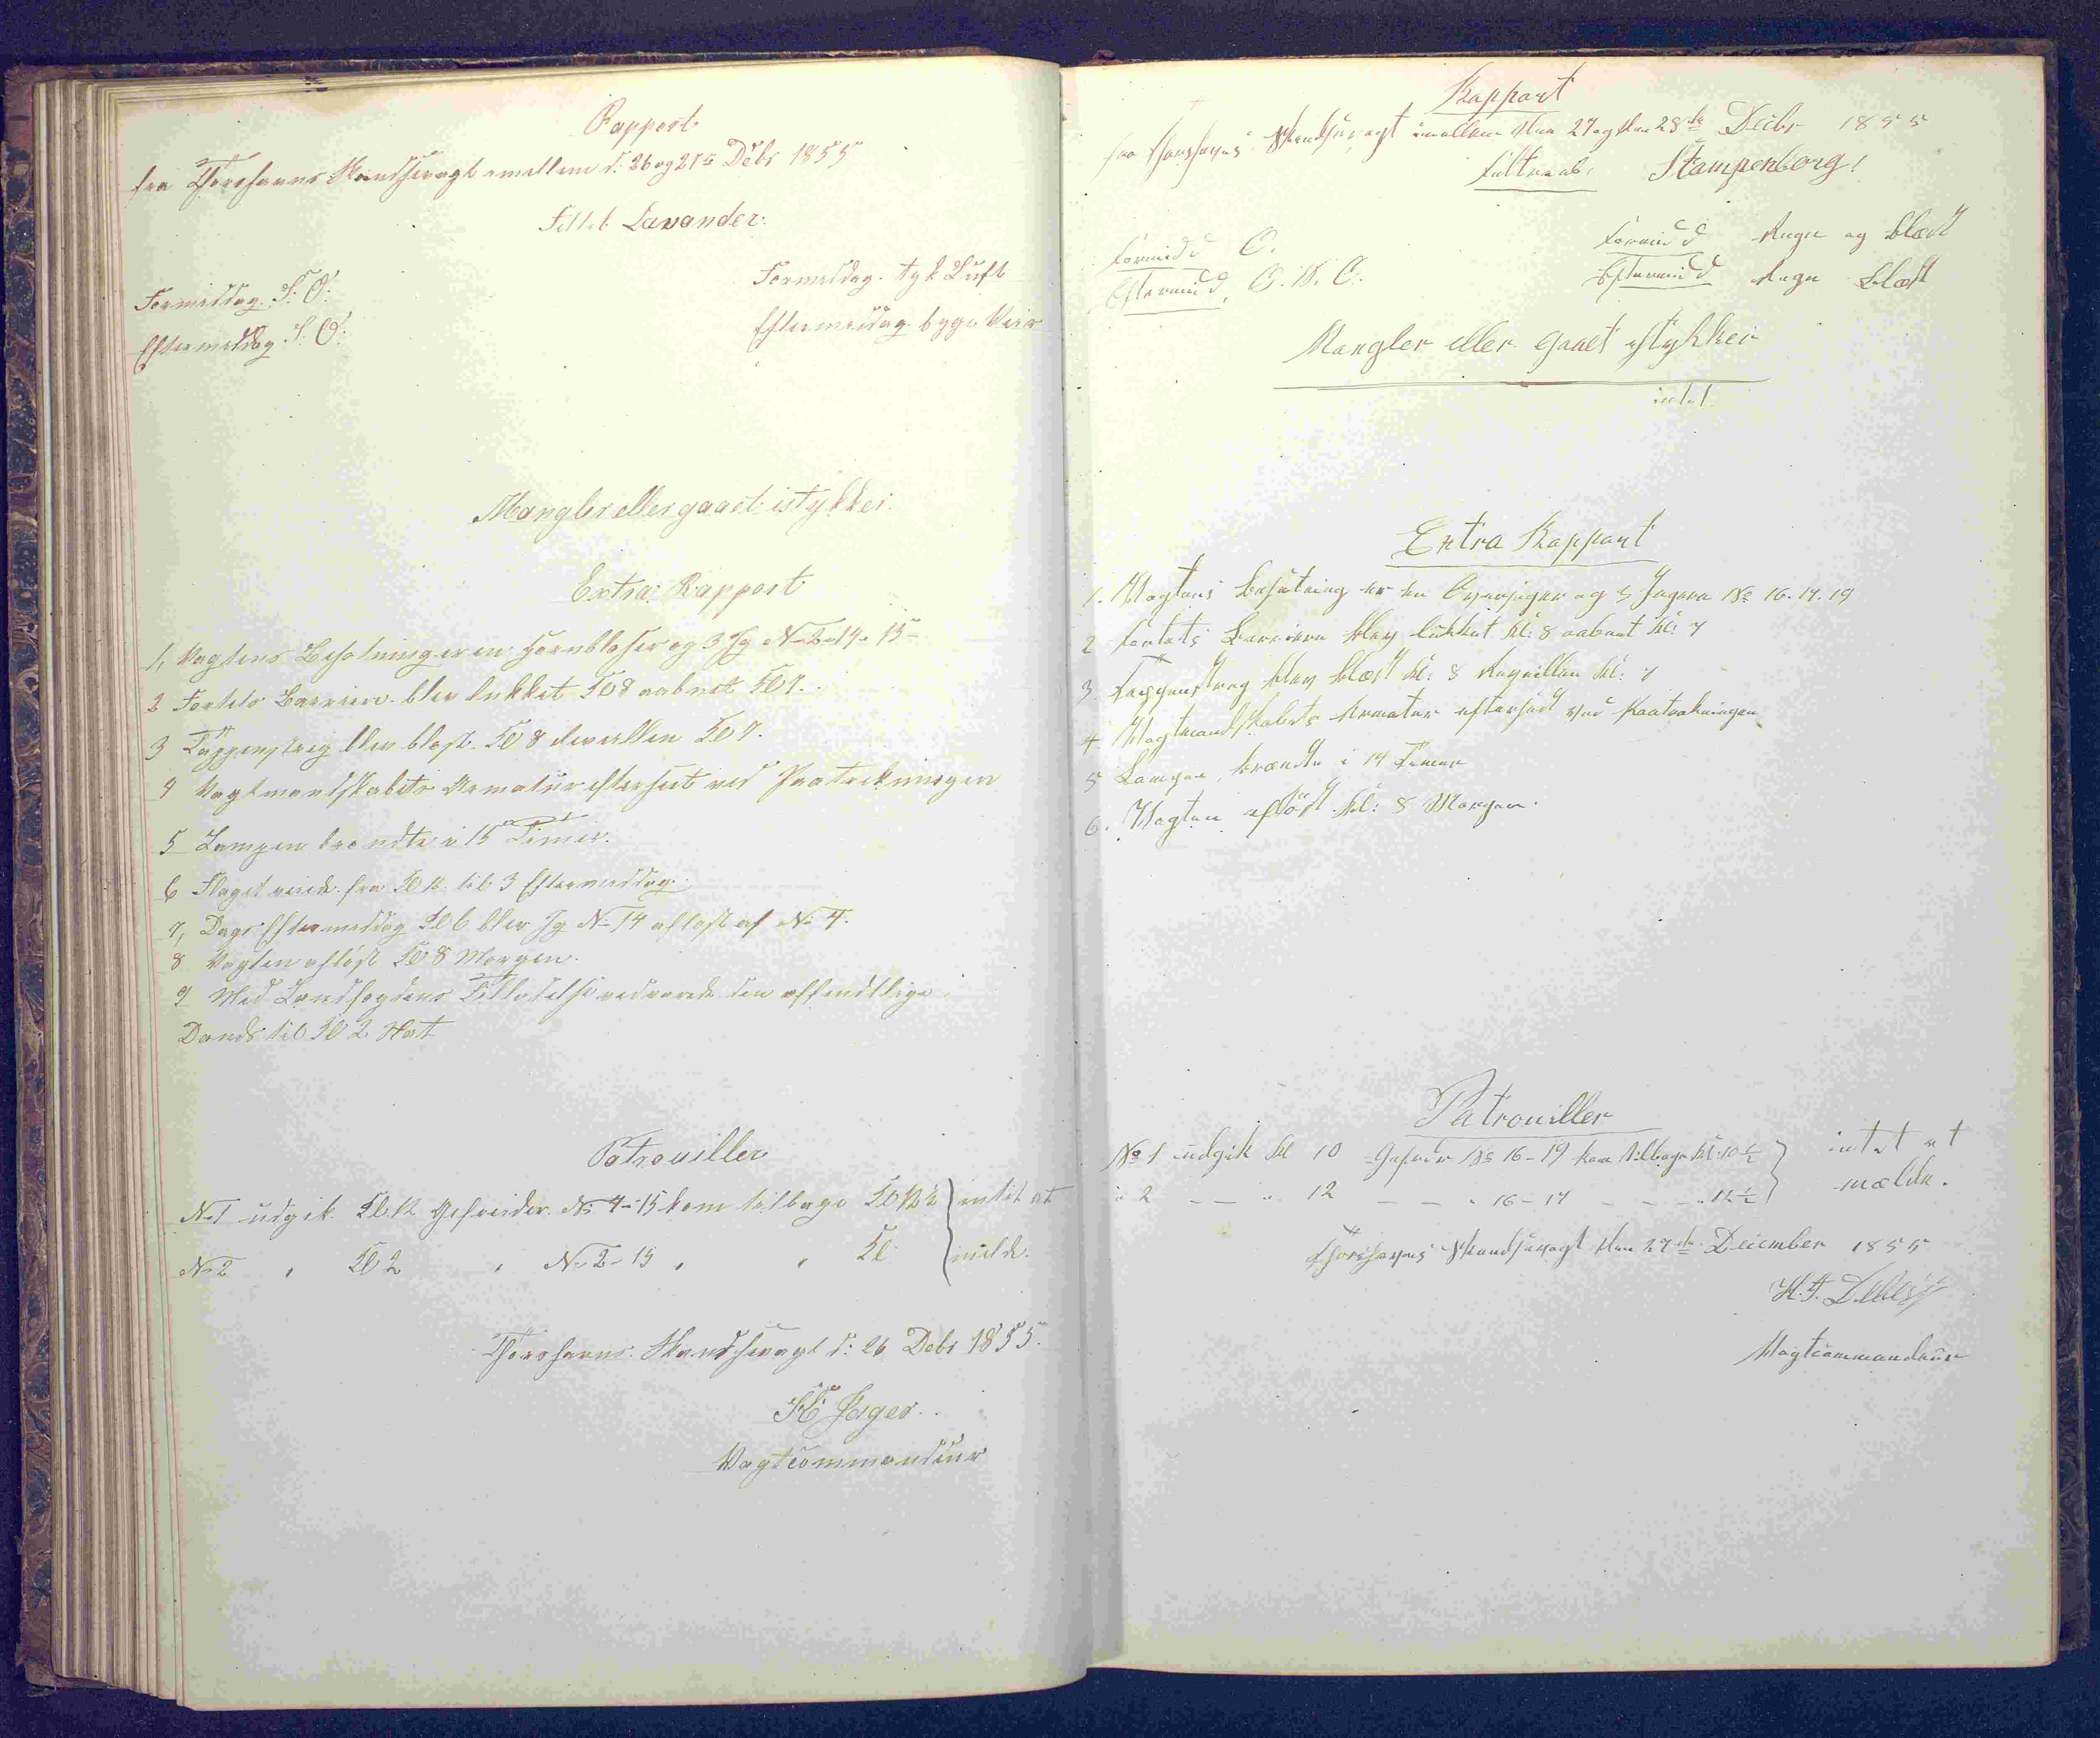 Rapport
fra Thorshavns Skandsevagt emellem d: 26 og 27de Debr 1855
Feltr. Lavander.
Formiddag. S: O:
Eftermiddag S. O:
Formiddag. tyk Luft
Eftermiddag. byge Veir
Mangler eller gaaet istykker.
Extra Rapport
1, Vagtens Besætning er en Hornblæser og 3 Jg No 2-14-15-
2 Fortets Barriere blev lukket Kl 8 aabnet Kl 7.
3 Tappenstreg blev blæst. Kl 8 Revellen Kl 7.
4 Vagtmandskabets Armatur efterseet ved Paatrekningen
5 Lampen brændte i 15 Timer.
6 Flaget veiede fra Kl 12 til 3 Eftermiddag.
7, Dags Eftermiddag Kl 6 blev Jg No 14 afløst af No 4.
8 Vagten afløst Kl 8 Morgen.
9 Med Landfogdens Tilladelse vedvarede den offendtlige
Dands til Kl 2 Nat
Patrouiller
No 1 udgik Kl. 12 Gefreider No 4-15 kom tilbage Kl 12½ intet at
No 2 " Kl 2 " No 2-15 " " Kl melde.
Thorshavns Skandsevagt d: 26 Debr 1855.
Jæger.
Vagtcommandeur
Rapport
fra Thorshavns Skandsevagt imellem den 27 og den 28de Decbr 1855
Feltraab, Stampenborg,
Formidd O.
Eftermidd, O. N. O.
Formidd Regn og blæst
Eftermidd Regn blæst
Mangler eller gaaet istykker
intet.
Extra Rappart
1. Vagtens besætning er en Overjæger og 3 Jægere No 16. 17. 19
2 Fortets Barriere blev lukket kl: 8 aabnet kl: 7
3. Tappenstreg blev blæst kl: 8 Reveillen kl: 7
4 Vagtmandskabets Armatur efterseet ved Paatrækningen
5 Lampen brændte i 14 Timer
6. Vagten afløst kl: 8 Morgen.
Patrouiller
No 1 udgik kl 10 Gefreider No 16-19 kom tilbage kl: 10½ intet at
" 2 — " 12 — — " 16-17 — — " 12½ mælde.
Thorshavns Skandsevagt den 27de December 1855
Debess
Vagtcommandeur